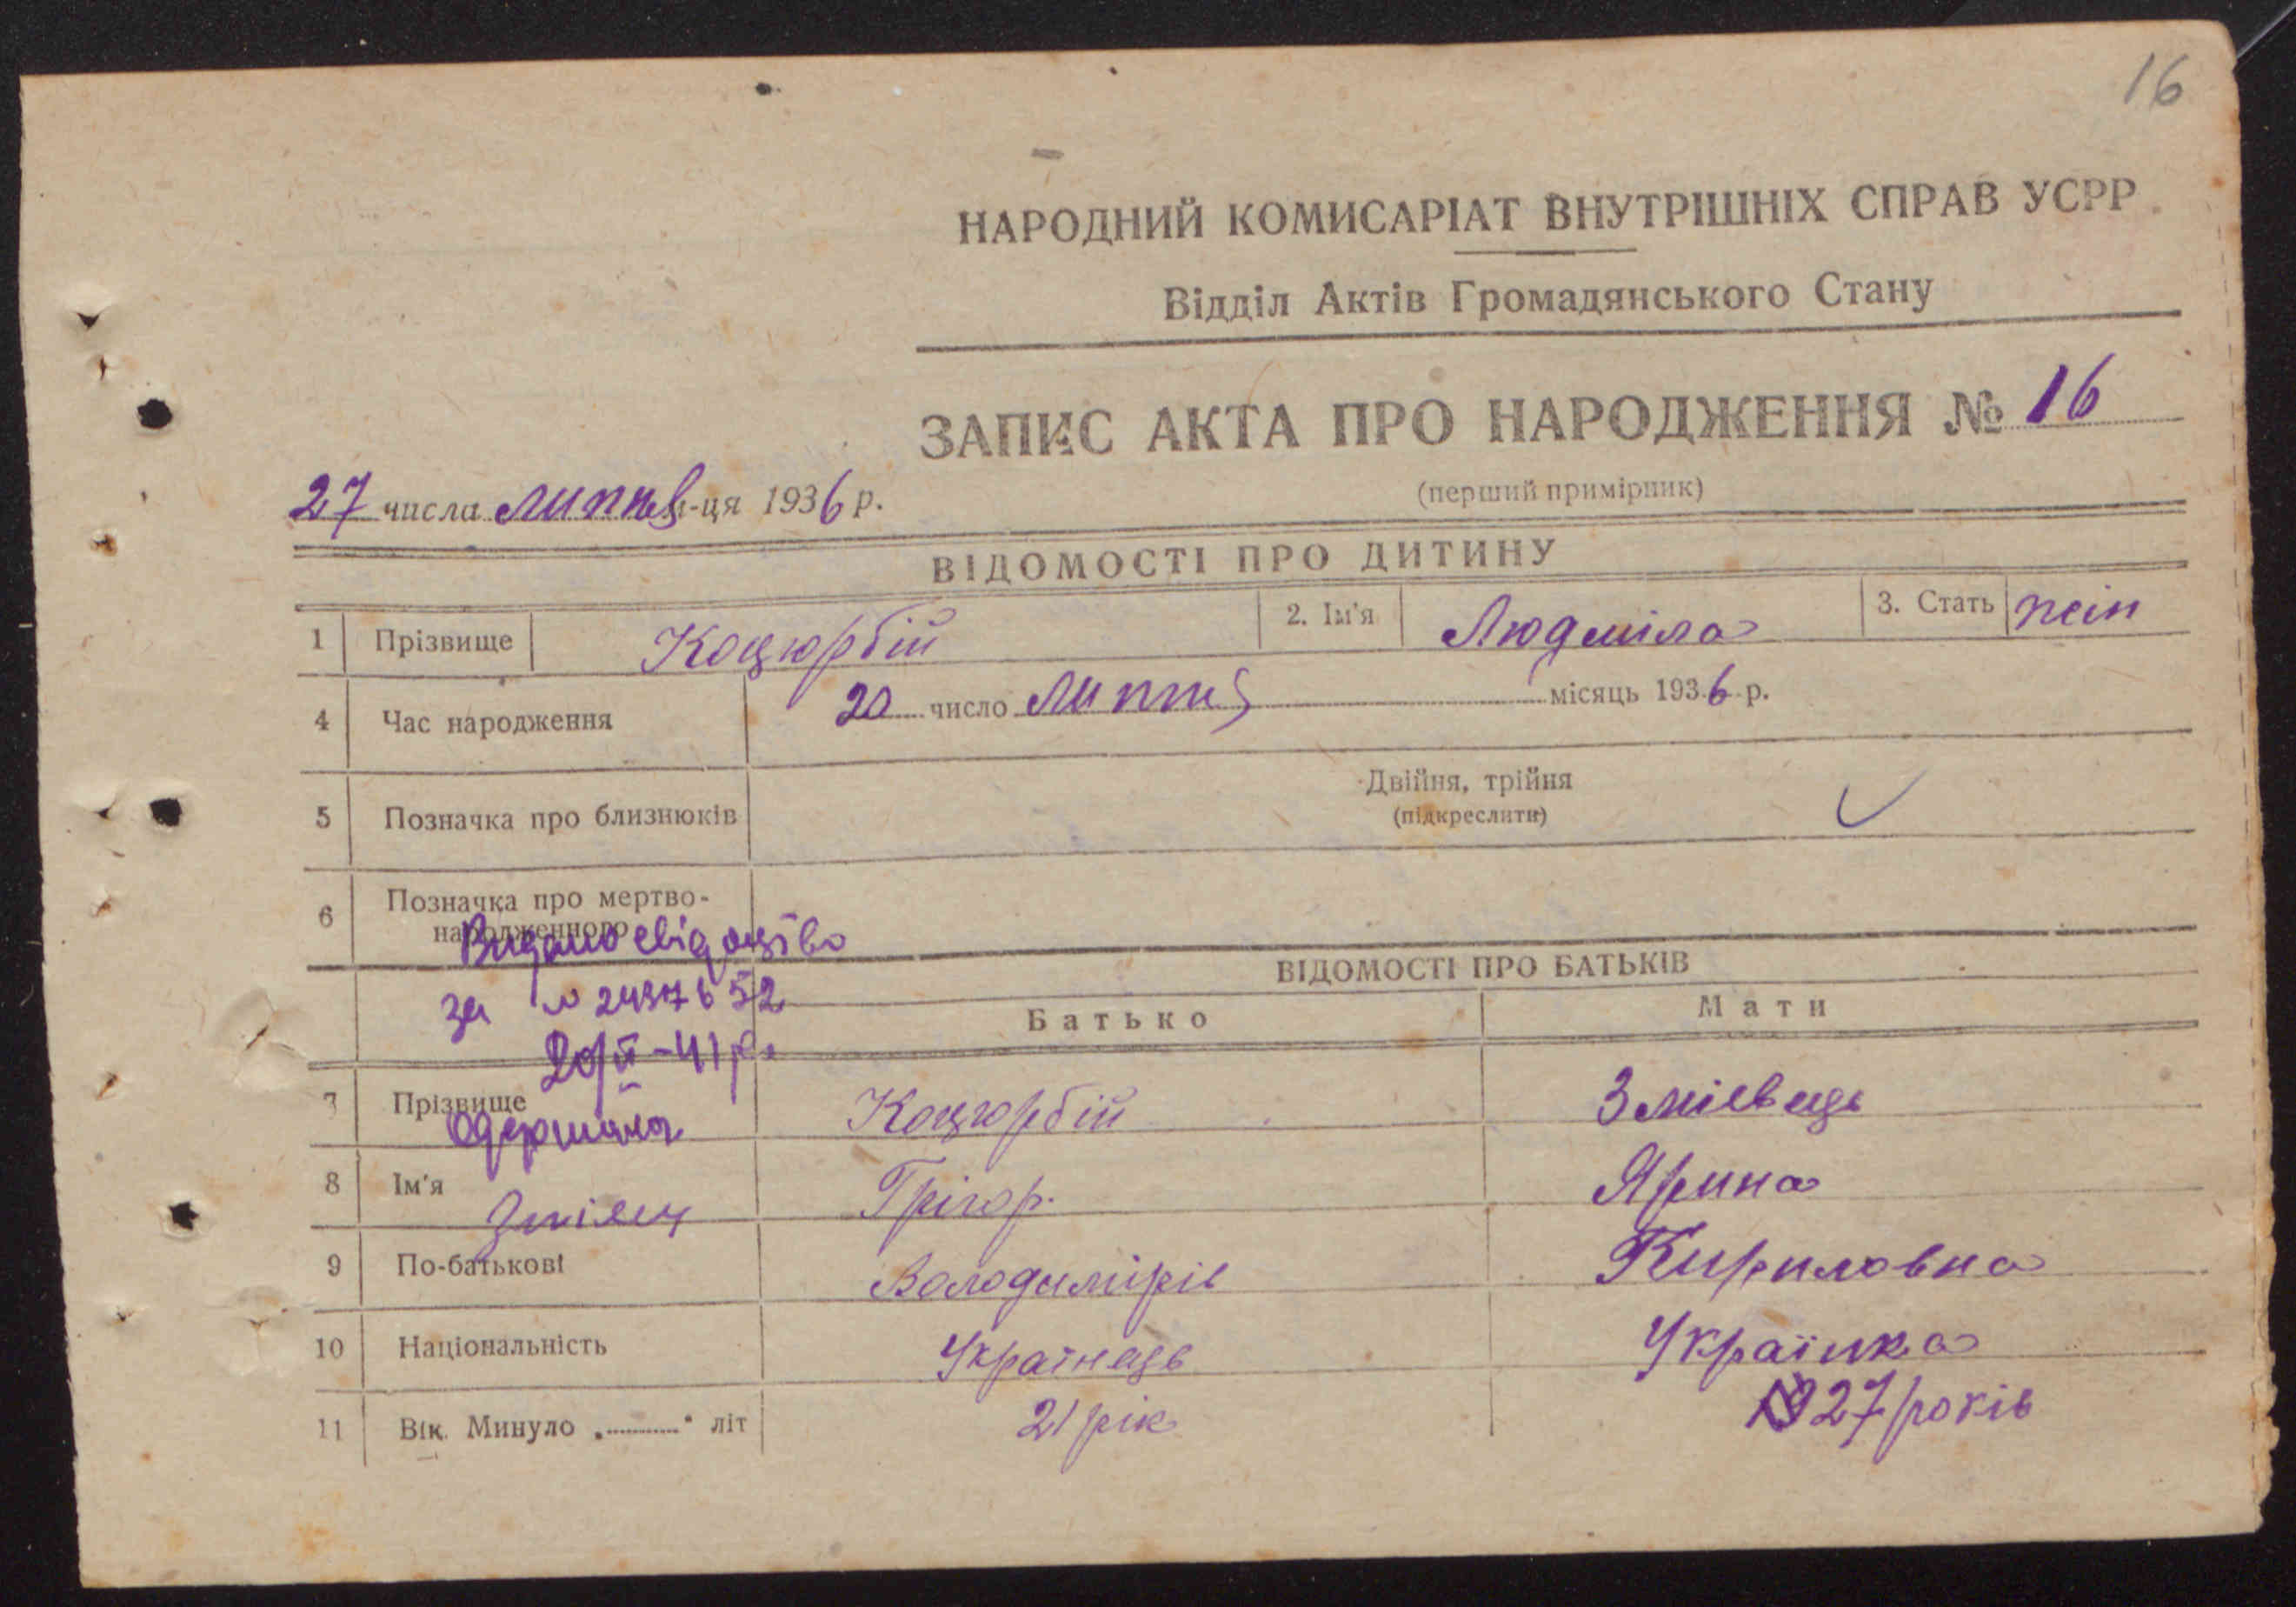 16
НАРОДНИЙ КОМИСАРІАТ ВНУТРІШНІХ СПРАВ УСРР
Відділ Актів Громадянського Стану
ЗАПИС АКТА ПРО НАРОДЖЕННЯ № 16
(перший примірник)
27 числа липня м-ця 1936 р.
ВІДОМОСТІ ПРО ДИТИНУ
1 Прізвище Коцюрбій 2. Ім'я Людміла 3. Стать жін
4 Час народження 20 число липня місяць 1936 р.
5 Позначка про близнюків Двійня, трійня
(підкреслити)
6 Позначка про мертво-
народженного
Видано свідоцтво
за № 2437652
20/II-41 р.
Одержала
ВІДОМОСТІ ПРО БАТЬКІВ
Батько Мати
7 Прізвище Коцюрбій Змієвець
8 Ім'я Грігор. Ярина
9 По-батькові Володимірів Кириловна
10 Національність Українець Українка
11 Вік. Минуло „..........“ літ 21 рік 27 років